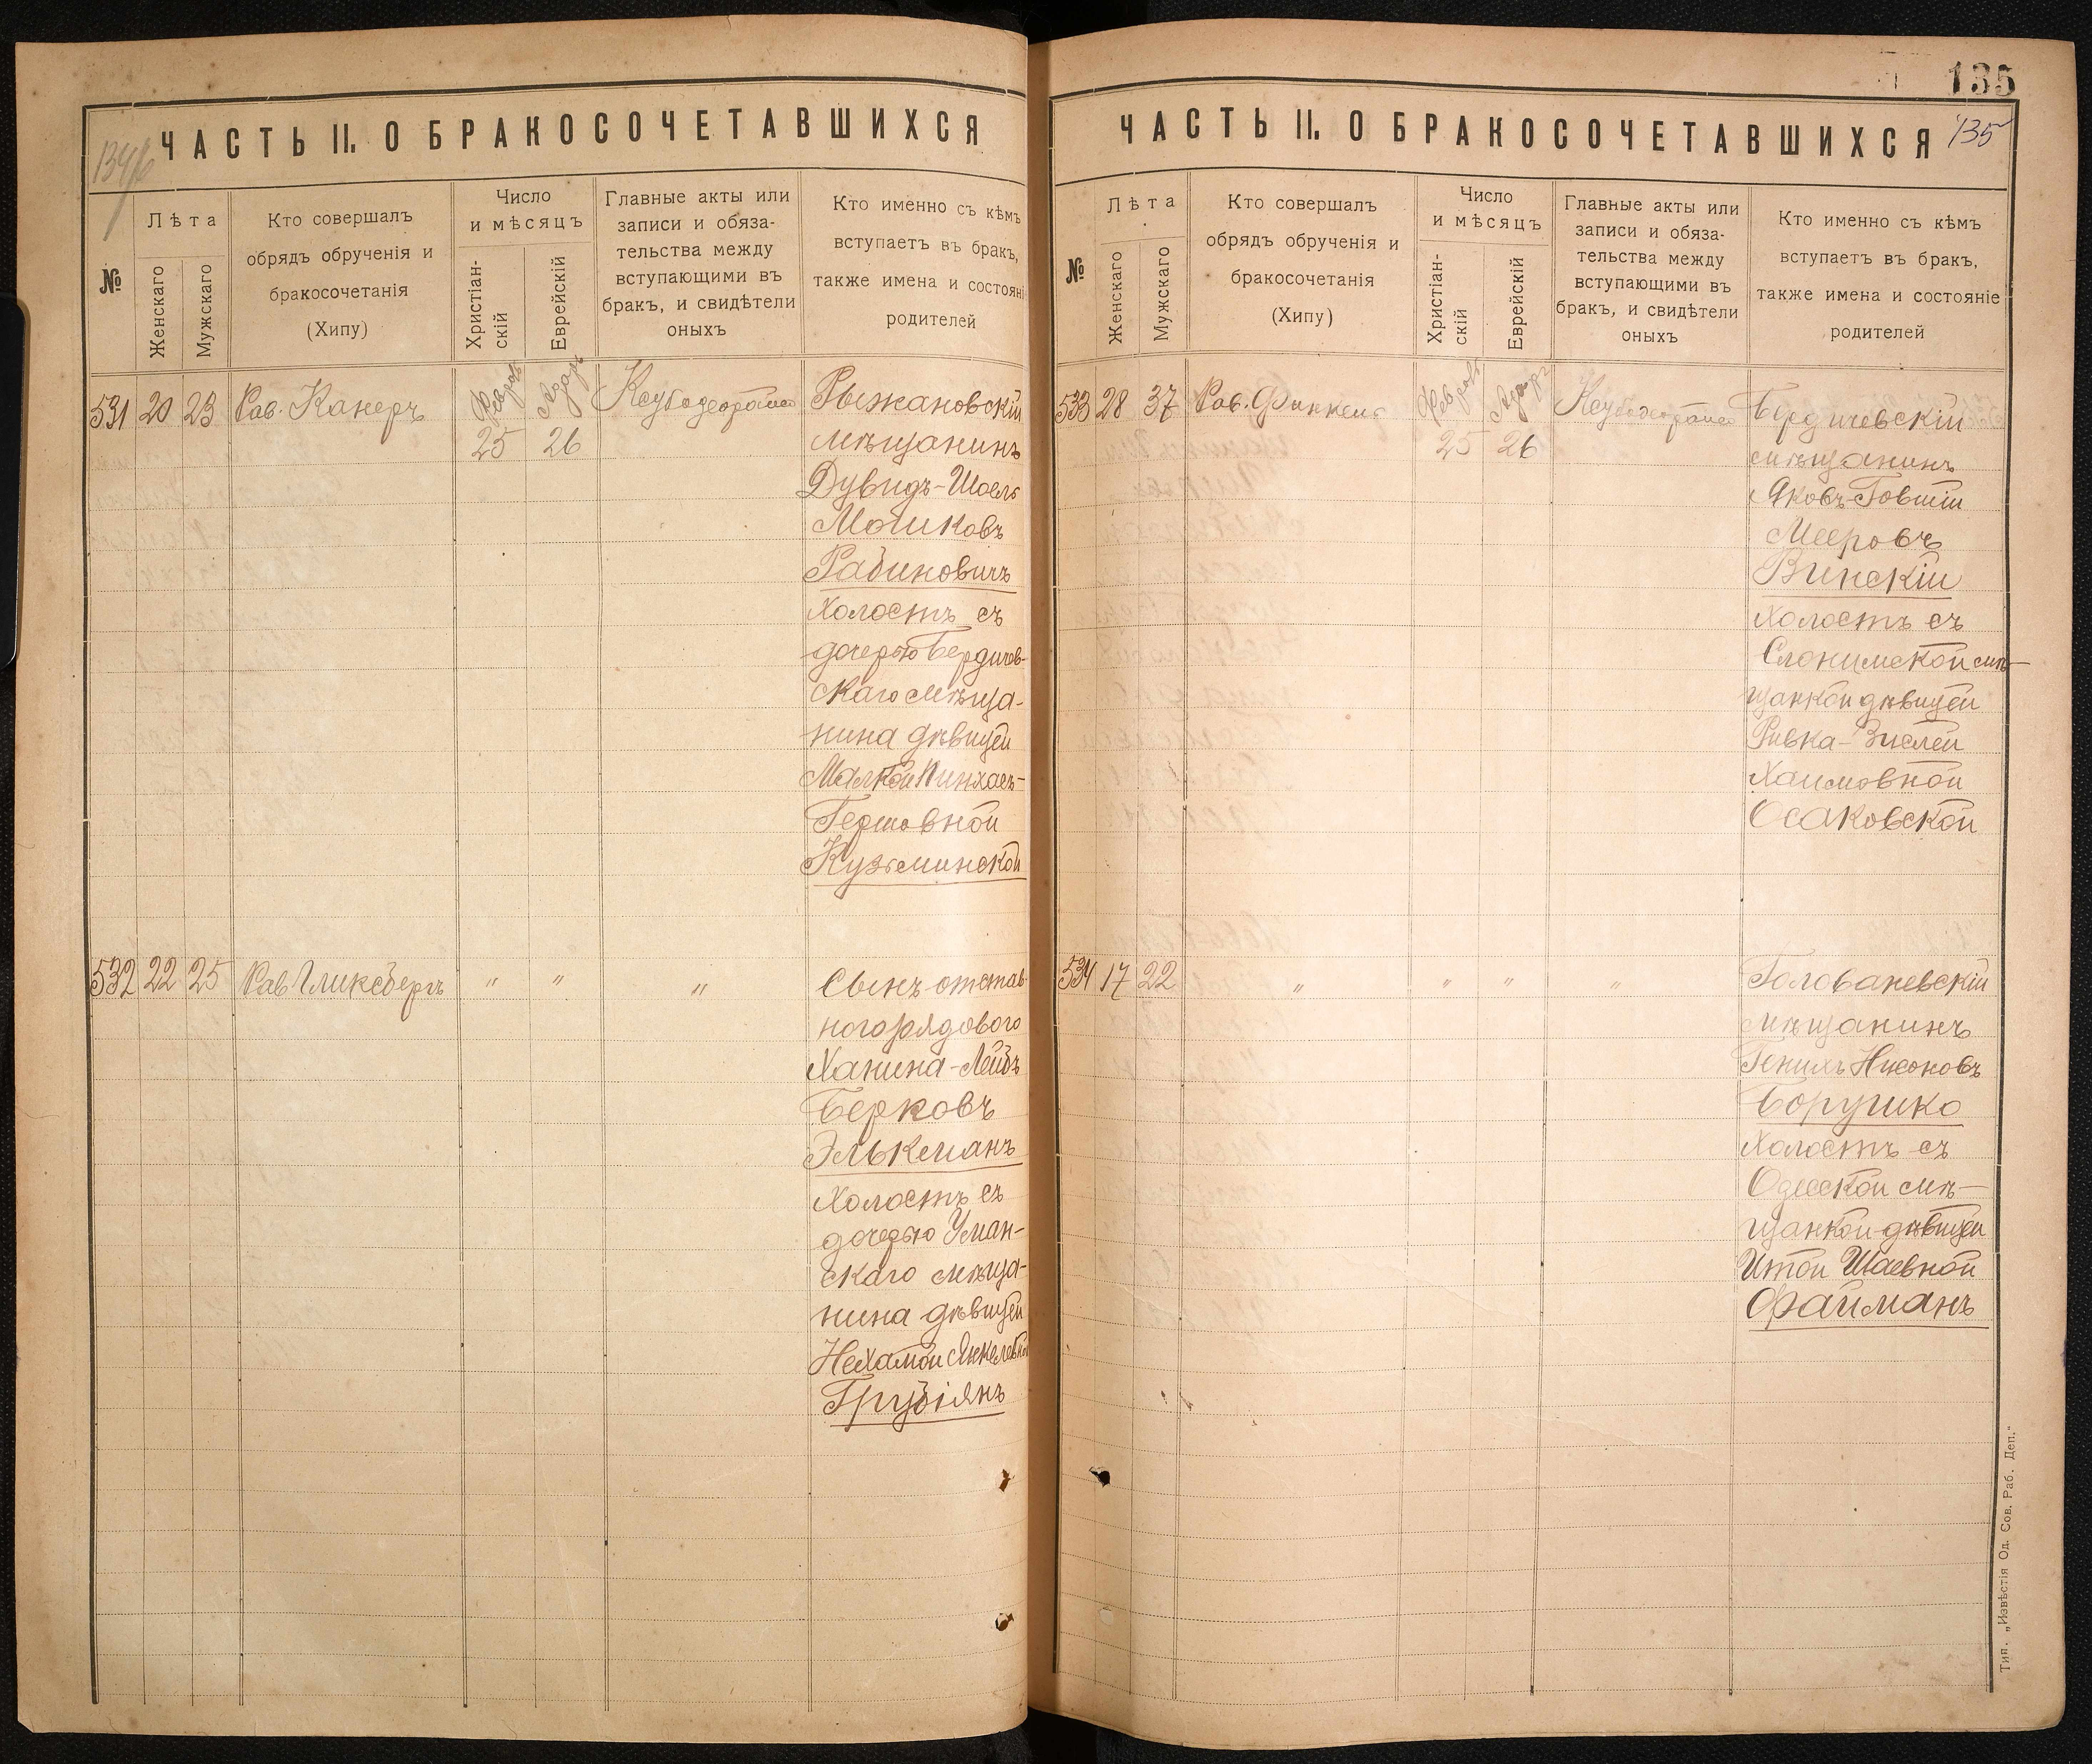 134/б
ЧАСТЬ II. О БРАКОСОЧЕТАВШИХСЯ
№
Лѣта
Женскаго
Мужскаго
Кто совершалъ
обрядъ обрученія и
бракосочетанія
(Хипу)
Число
и мѣсяцъ
Христіан-
скій
Еврейскій
Главные акты или
записи и обяза-
тельства между
вступающими въ
бракъ, и свидѣтели
оныхъ
Кто именно съ кѣмъ
вступаетъ въ бракъ,
также имена и состояні
родителей
531 20 23 Рав. Канеръ
Февраль
25
Адаръ
26
Рыжановскій
мѣщанинъ
Дувидъ-Шоель
Мошковъ
Рабиновичъ
холостъ съ
дочерью Бердичев-
скаго мѣща-
нина дѣвицей
Малкой Пинхасъ-
Гершовной
Кузьминской
532 22 25 Рав. Гликсбергъ " " "
Сынъ отстав-
ного рядового
Ханина-Лейбъ
Берковъ
Элькманъ
холостъ съ
дочерью Уман-
скаго мѣща-
нина дѣвицей
Нехамой Янкелевной
135
ЧАСТЬ II. О БРАКОСОЧЕТАВШИХСЯ
135
№
Лѣта
Женскаго
Мужскаго
Кто совершалъ
обрядъ обрученія и
бракосочетанія
(Хипу)
Число
и мѣсяцъ
Христіан-
скій
Еврейскій
Главные акты или
записи и обяза-
тельства между
вступающими въ
бракъ, и свидѣтели
оныхъ
Кто именно съ кѣмъ
вступаетъ въ бракъ,
также имена и состояніе
родителей
533 28 37 Рав.
Февраль
25
Адаръ
26
Бердичевскій
мѣщанинъ
Яковъ-Говшій
Мееровъ
Винскій
холостъ съ
Слонимской мѣ-
щанкой дѣвицей
Ривка-Зислей
Хаимовной
Осаковской
534 17 22 " " " "
Голованевскій
мѣщанинъ
Генихъ Нисоновъ
холостъ съ
Одесской мѣ-
щанкой дѣвицей
Итой Шаевной
Файманъ
Тип. „Извѣстія Од. Сов. Раб. Деп."